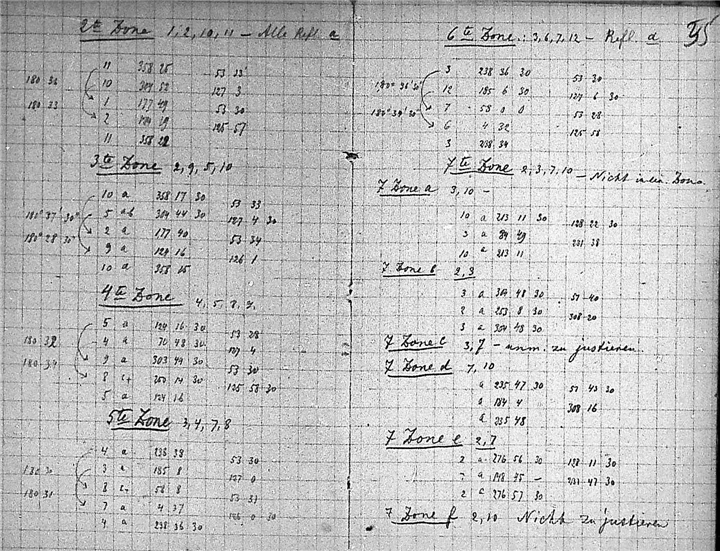 2te Zone 1, 2, 10, 11 – Alle Refl. a
11 358 25
180 36 53 33
10 304 52
127 3
180 33 1 177 49
53 30
2 124 19
125 57
11 358 22
3te Zone 2, 9, 5, 10
10 a 358 17 30
53 33
180° 37' 30" 5 ab 304 44 30
127 4 30
2 a 177 40
180° 28' 30" 53 34
9 a 124 16
126 1
10 a 358 15
4te Zone 4, 5, 8, 9.
5 a 124 16 30
53 28
180 32 4 a 70 48 30
127 4
9 a 303 44 30
180 34 53 30
8 250 14 30
125 58 30
5 a 124 16
5te Zone 3, 4, 7, 8
4 a 238 38
53 30
180 30 3 a 185 8
127 0
8 58 8
180 31 53 31
7 a 4 37
126 0 30
4 a 238 36 30
6te Zone: 3, 6, 7, 12 – Refl. a
55
3 238 36 30
53 30
180° 36' 30" 12 185 6 30
127 6 30
7 58 0 0
180° 34' 30" 53 28
6 4 32
125 58
3 238 34
7te Zone 2, 3, 7, 10 – Nicht in ein. Zone.
7 Zone a 3, 10 –
10 a 213 11 30
128 22 30
3 a 84 49
231 38
10 a 213 11
7 Zone b 2, 3
3 a 304 48 30
51 40
2 a 253 8 30
308 20
3 a 304 48 30
7 Zone c 3, 7 – unm. zu justieren.
7 Zone d 7, 10
a 235 47 30
51 43 30
a 184 4
308 16
a 235 48
7 Zone e 2, 7
2 a 276 56 30
128 11 30
a 148 35 –
231 47 30
2 a 276 57 30
7 Zone f 2, 10 Nicht zu justieren